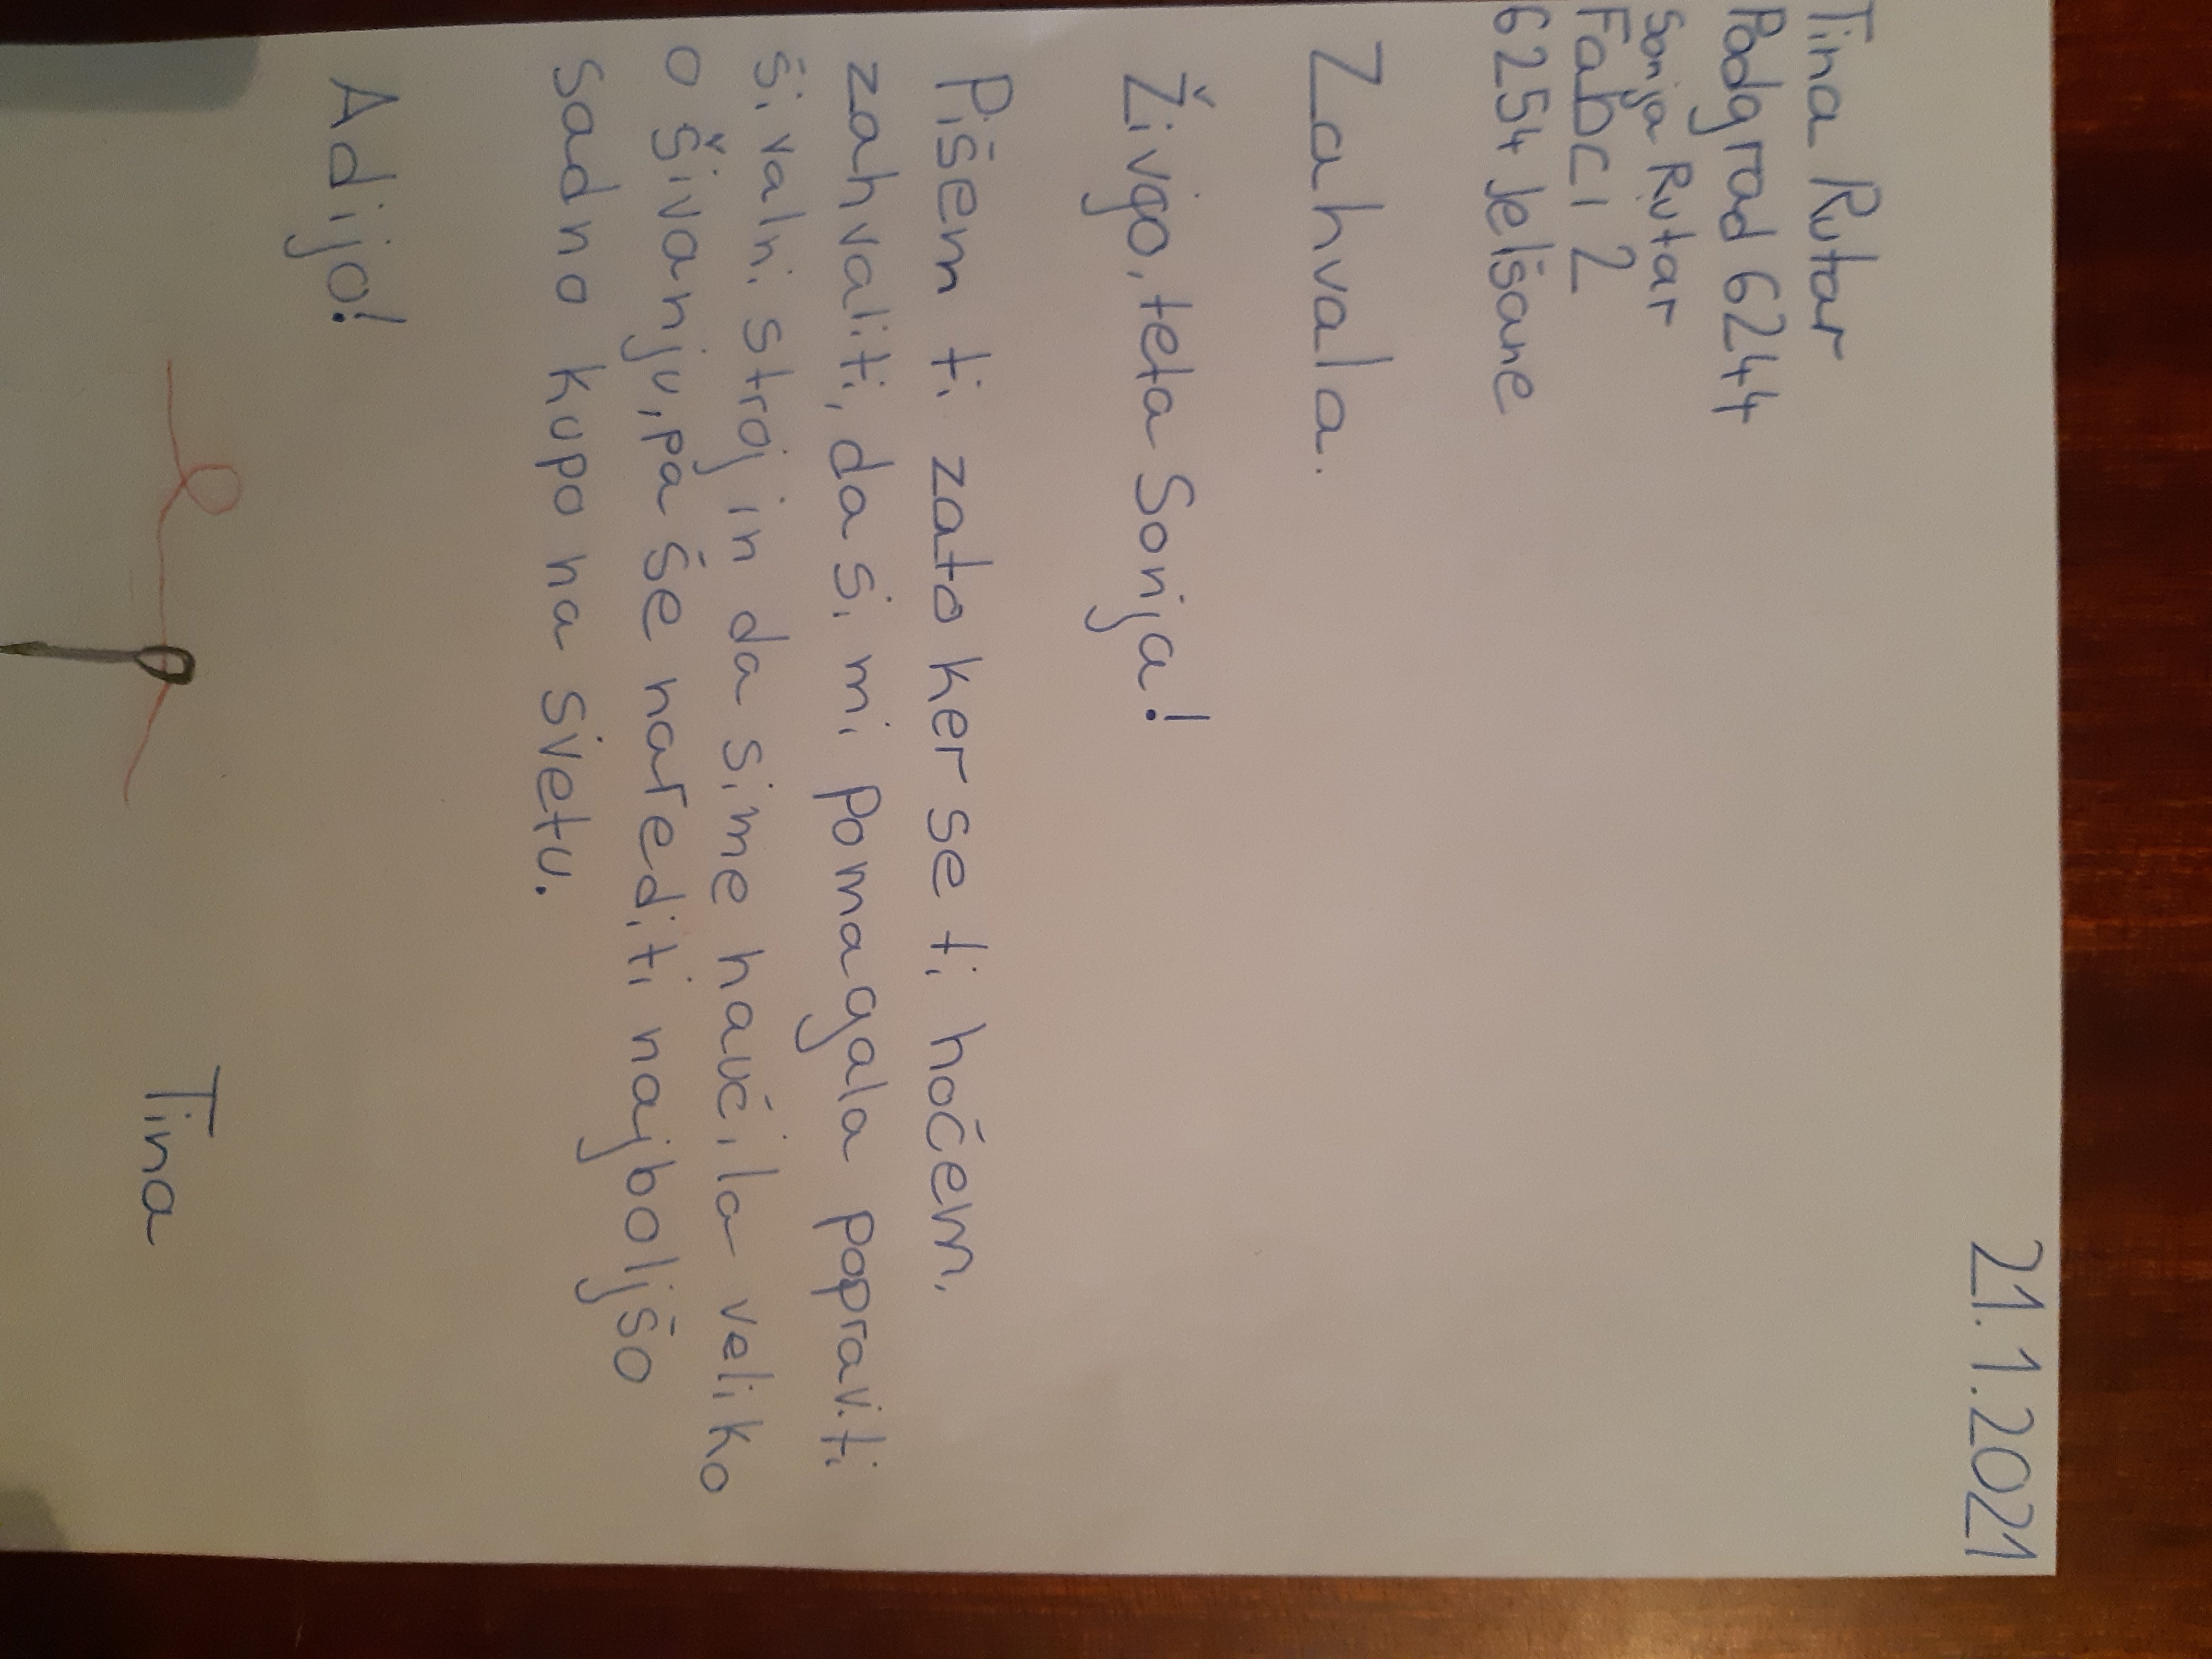 21.1.2021
Tina Rutar
Podgrad 6244
Sonja Rutar
Fabci 2
6254 Jelšane
Zahvala.
Živjo, teta Sonja!
Pišem ti zato ker se ti hočem,
zahvaliti, da si mi pomagala popraviti
šivalni stroj in da si me naučila veliko
o šivanju, pa še narediti najboljšo
sadno kupo na svetu.
Adijo!
Tina